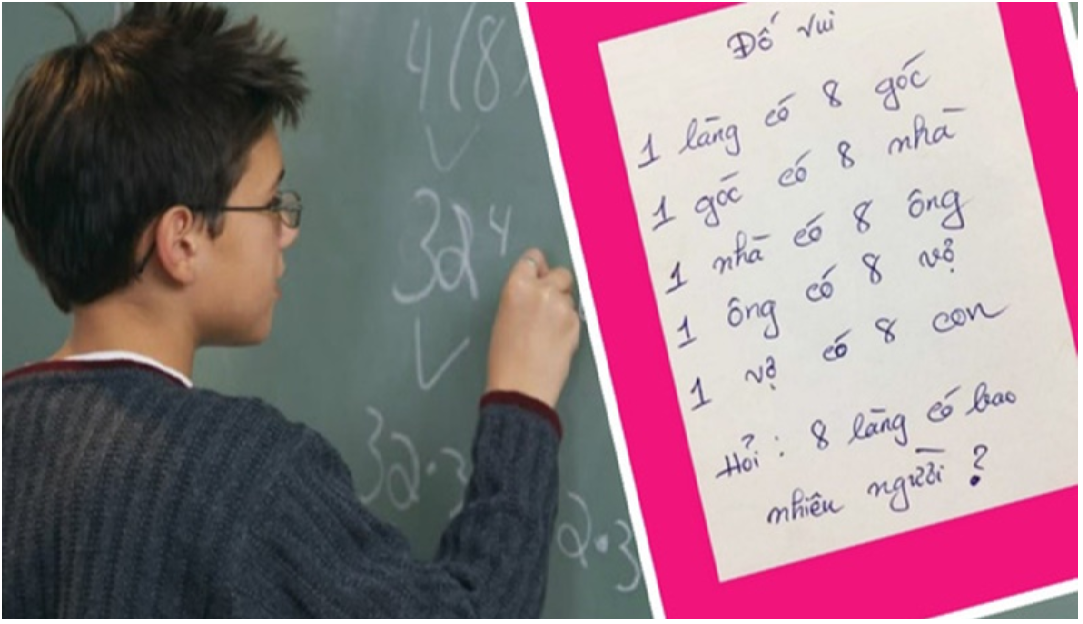 4(8)
32⁴
32·3
2·3
Đố vui
1 làng có 8 góc
1 góc có 8 nhà
1 nhà có 8 ông
1 ông có 8 vợ
1 vợ có 8 con
Hỏi: 8 làng có bao
nhiêu người?